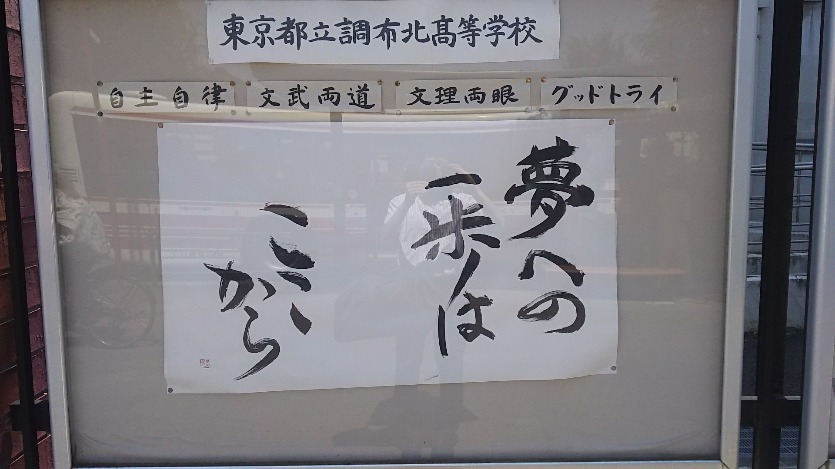 東京都立調布北高等学校
自主自律
文武両道
文理両眼
グッドトライ
夢への
一歩は
ここから